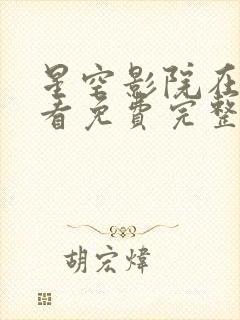 星空影院在
看免费完整
胡宏炜